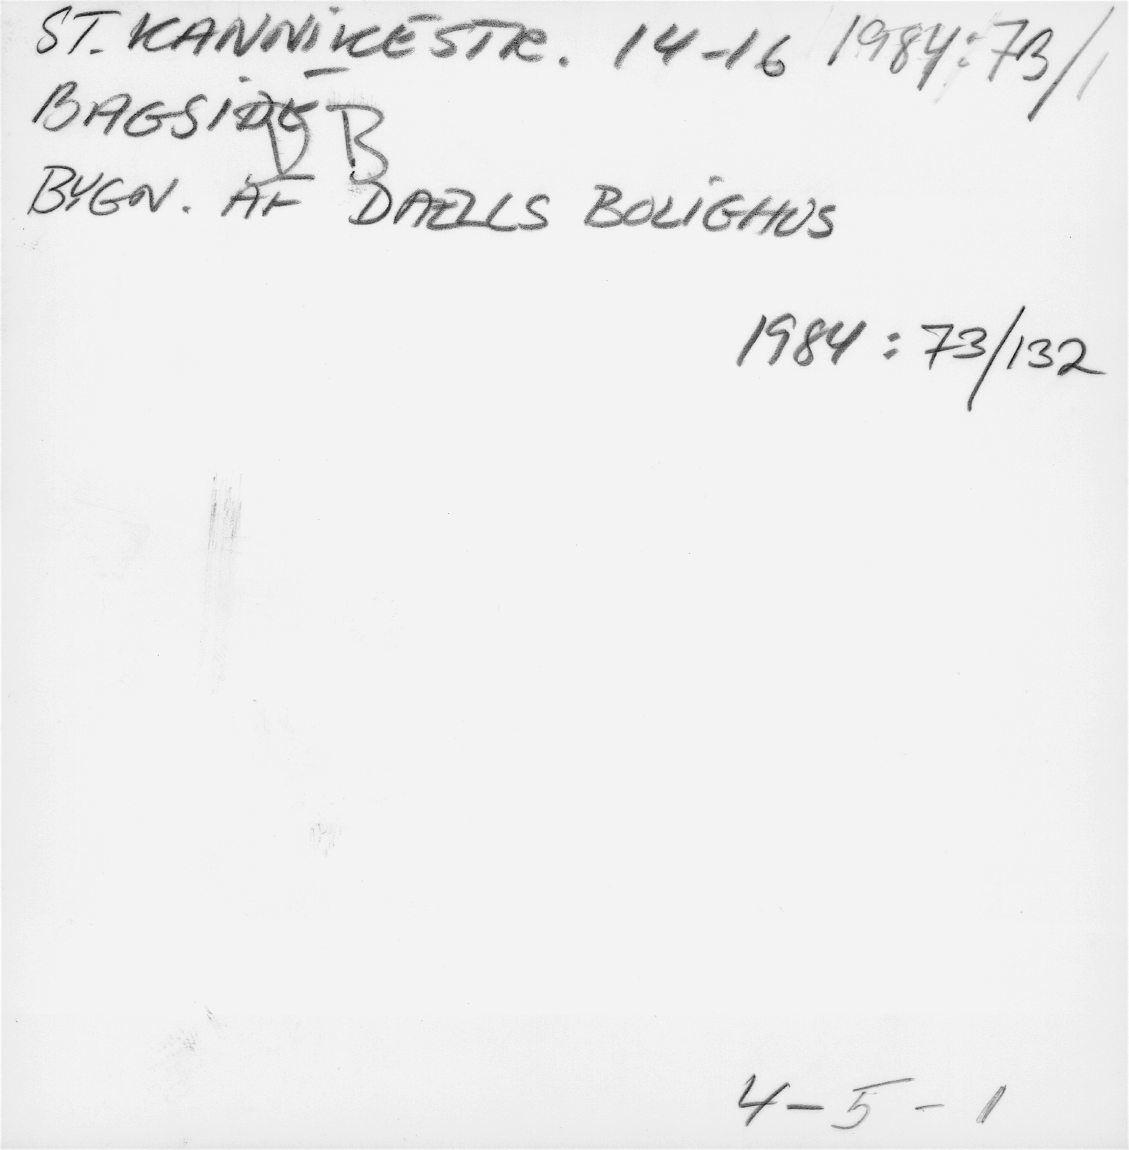 ST. KANNIKESTR. 14-16 1984:73/1
BAGSIDE
B
BYGN. AF DAELLS BOLIGHUS
1984 : 73/132
4-5-1